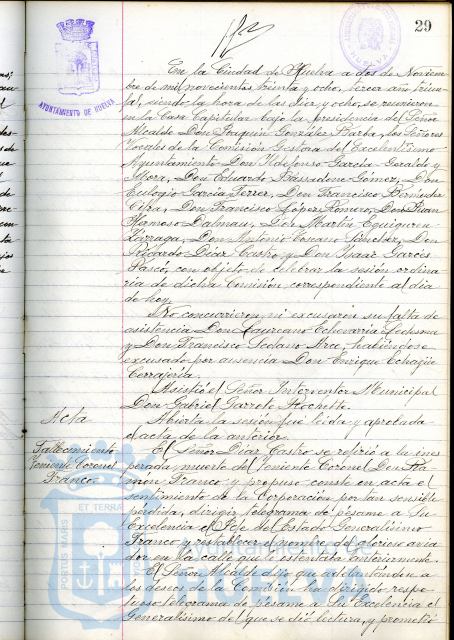 29
AYUNTAMIENTO DE HUELVA
En la Ciudad de Huelva a dos de Noviem-
bre de mil novecientos treinta y ocho, tercer año triun-
fal, siendo la hora de las diez y ocho, se reunieron
en la Casa Capitular bajo la presidencia del Señor
Alcalde Don Joaquín González Barba, los Señores
Vocales de la Comisión Gestora del Excelentísimo
Ayuntamiento Don Ildefonso García-Geraldo y
Mora, Don Eduardo Bassadone Gómez, Don
Eulogio García Ferrer, Don Francisco
Don Francisco López Romero, Don Juan
Hermoso Dalmau, Don Martín Equiguren
Don Antonio Toscano Sánchez, Don
Ricardo Díaz Castro y Don Isaac Garcés
Pascó, con objeto de celebrar la sesión ordina-
ria de dicha Comisión correspondiente al día
de hoy.
No concurrieron, ni excusaron su falta de
asistencia Don Laureano Echevarría Ledesma
y Don Francisco Sedano Arce, habiéndose
excusado por ausencia Don Enrique Echagüe
Asistió el Señor Interventor Municipal
Don Gabriel Garrote
Acta
Abierta la sesión fué leída y aprobada
el acta de la anterior.
Fallecimiento
Teniente Coronel
Franco.
El Señor Díaz Castro se refirió a la ines-
perada muerte del Teniente Coronel Don Ra-
món Franco y propuso conste en acta el
sentimiento de la Corporación por tan sensible
pérdida, dirigir telegrama de pésame a Su
Excelencia el Jefe del Estado Generalísimo
Franco y restablecer el nombre del glorioso avia-
dor en la calle que lo ostentaba anteriormente.
El Señor Alcalde dijo que adelantándose a
los deseos de la Comisión ha dirigido respe-
tuoso telegrama de pésame a Su Excelencia el
Generalísimo del que se dió lectura, y prometió
PORTUS MARIS ET TERRAE
Ayuntamiento de